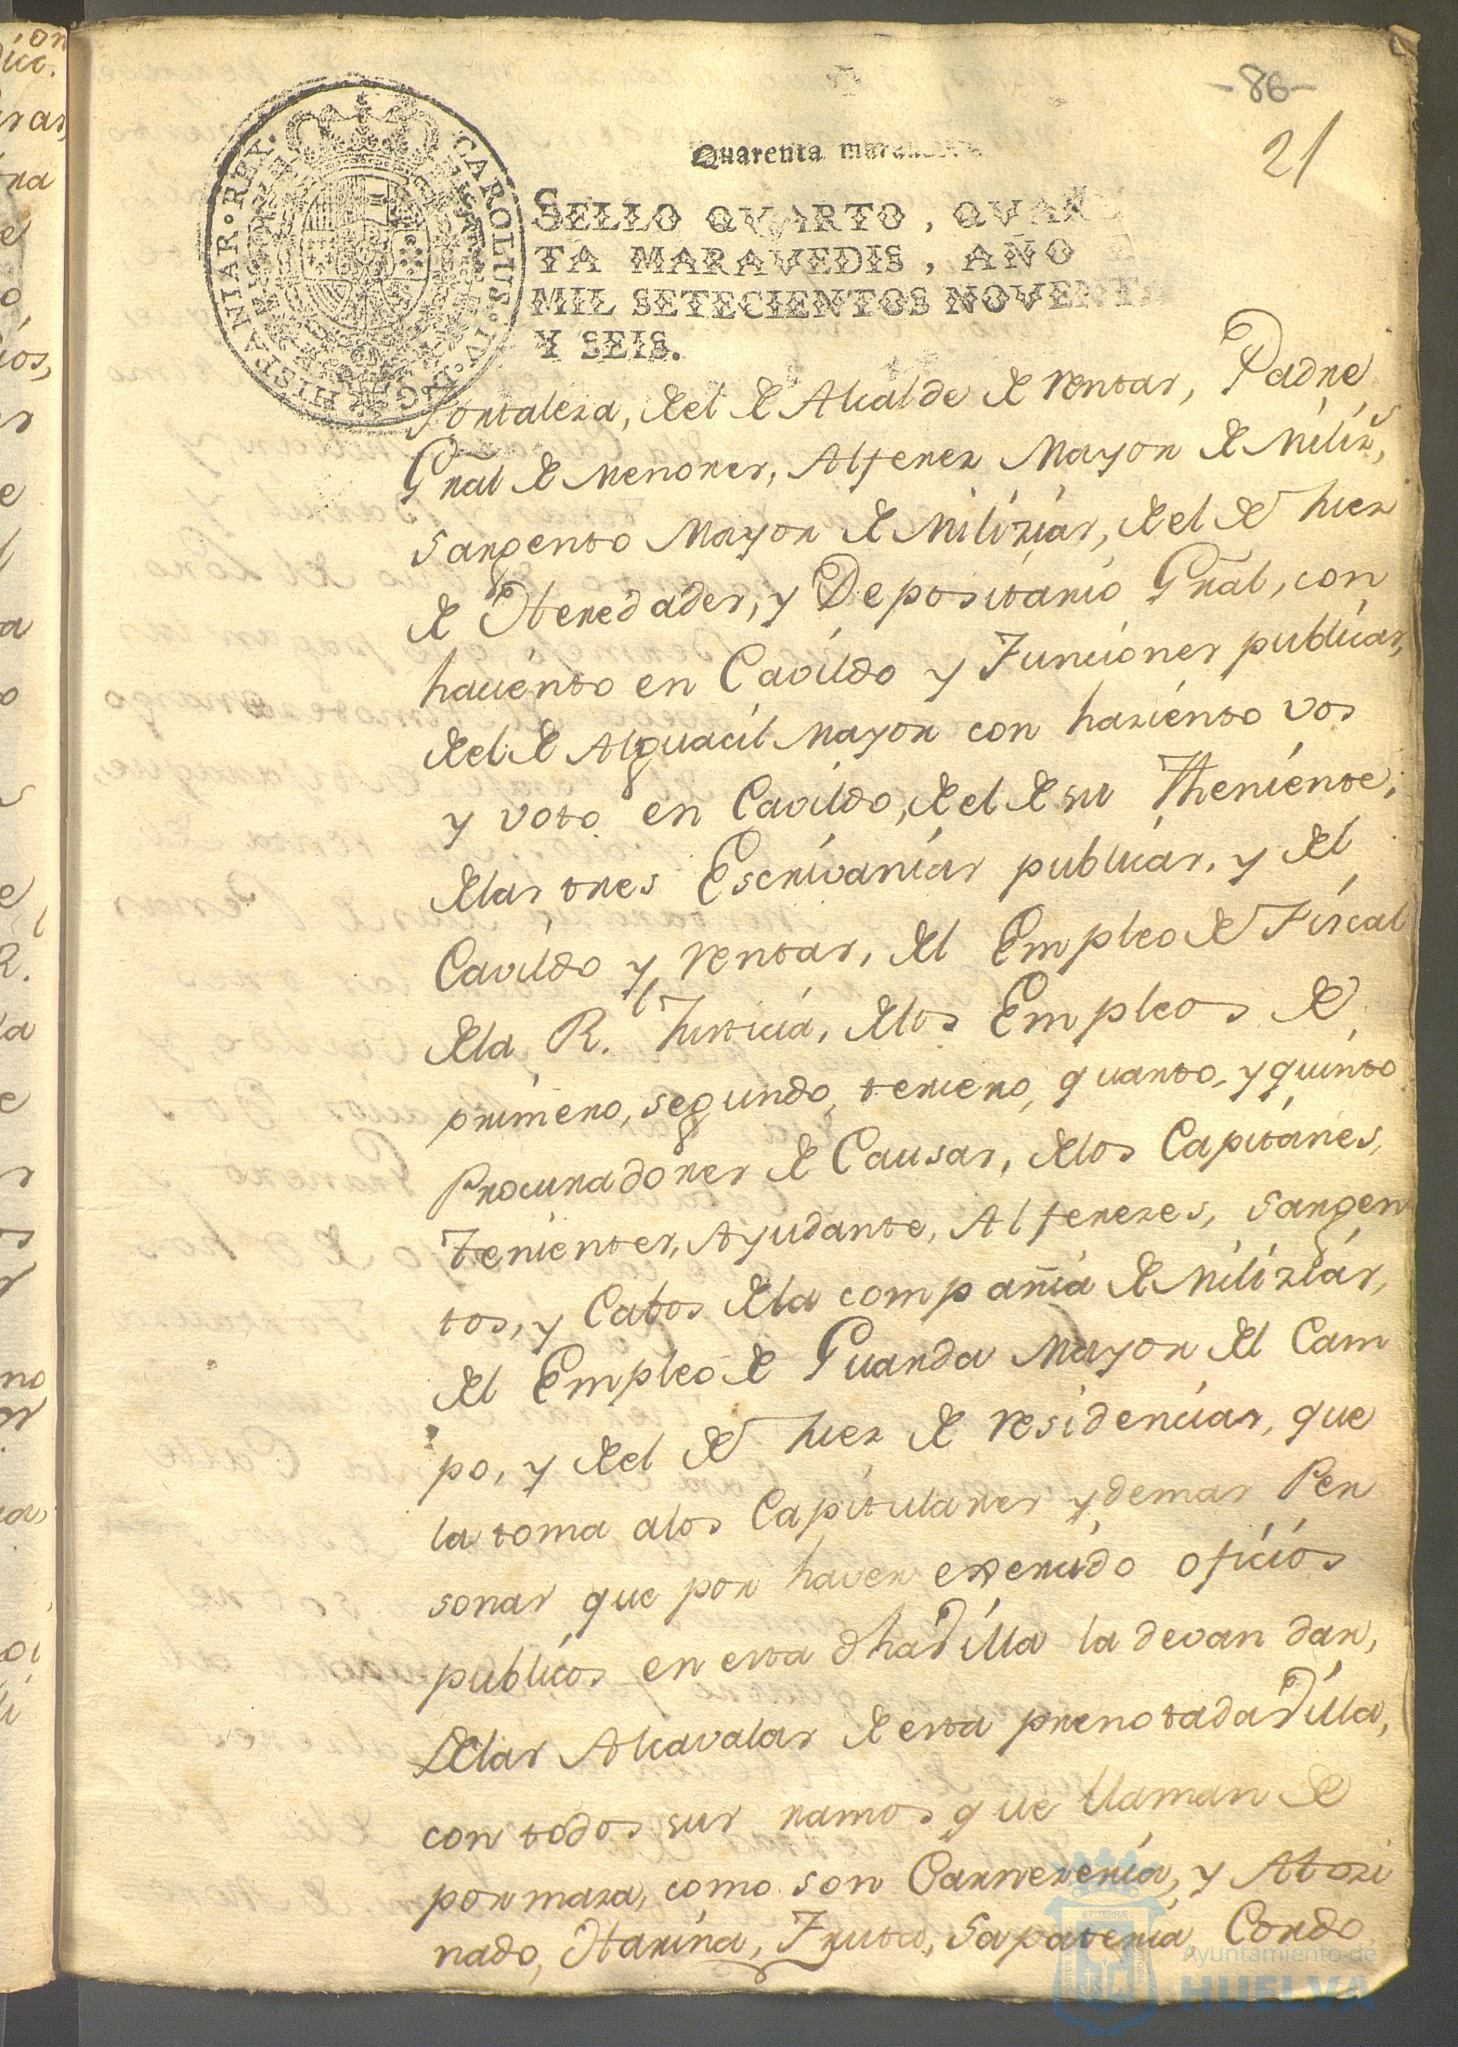 -86-
21
Quarenta marav
CAROLUS · IV · D · G · HISPANIAR · REX ·
SELLO QVARTO, QVAR
TA MARAVEDIS, AÑO
MIL SETECIENTOS NOVENTA
Y SEIS.
Fortaleza, del de Alcalde de rentas, Padre
Gral de Menores, Alferez Mayor de Miliz.s,
Sargento Mayor de Milizias, del de Juez
de Heredades, y Depositario Gral, con
haciento en Cavildo y Funciones publicas,
del de Alguacil Mayor con haziento vos
y voto en Cavildo, del de su Theniente,
de las tres Escrivanias publicas, y del
Cavildo y rentas, del Empleo de Fiscal
de la R.l Justicia, de los Empleos de
primero, segundo, tercero, quarto, y quinto
Procuradores de Causas, de los Capitanes,
Tenientes, Ayudante, Alferezes, Sargen
tos, y Cabos de la compañia de Milizias,
del Empleo de Guarda Mayor del Cam
po, y del de Juez de residencias, que
la toma a los Capitulares y demas Per
sonas que por haver exercido oficios
publicos en esta dha Villa la devan dar,
de las Alcavalas de esta prenotada Villa,
con todos sus ramos que llaman de
por maza, como son Carneceria, y Atozi
nado, Harina, Fruta, Sapateria Cordo
Ayuntamiento de
HUELVA